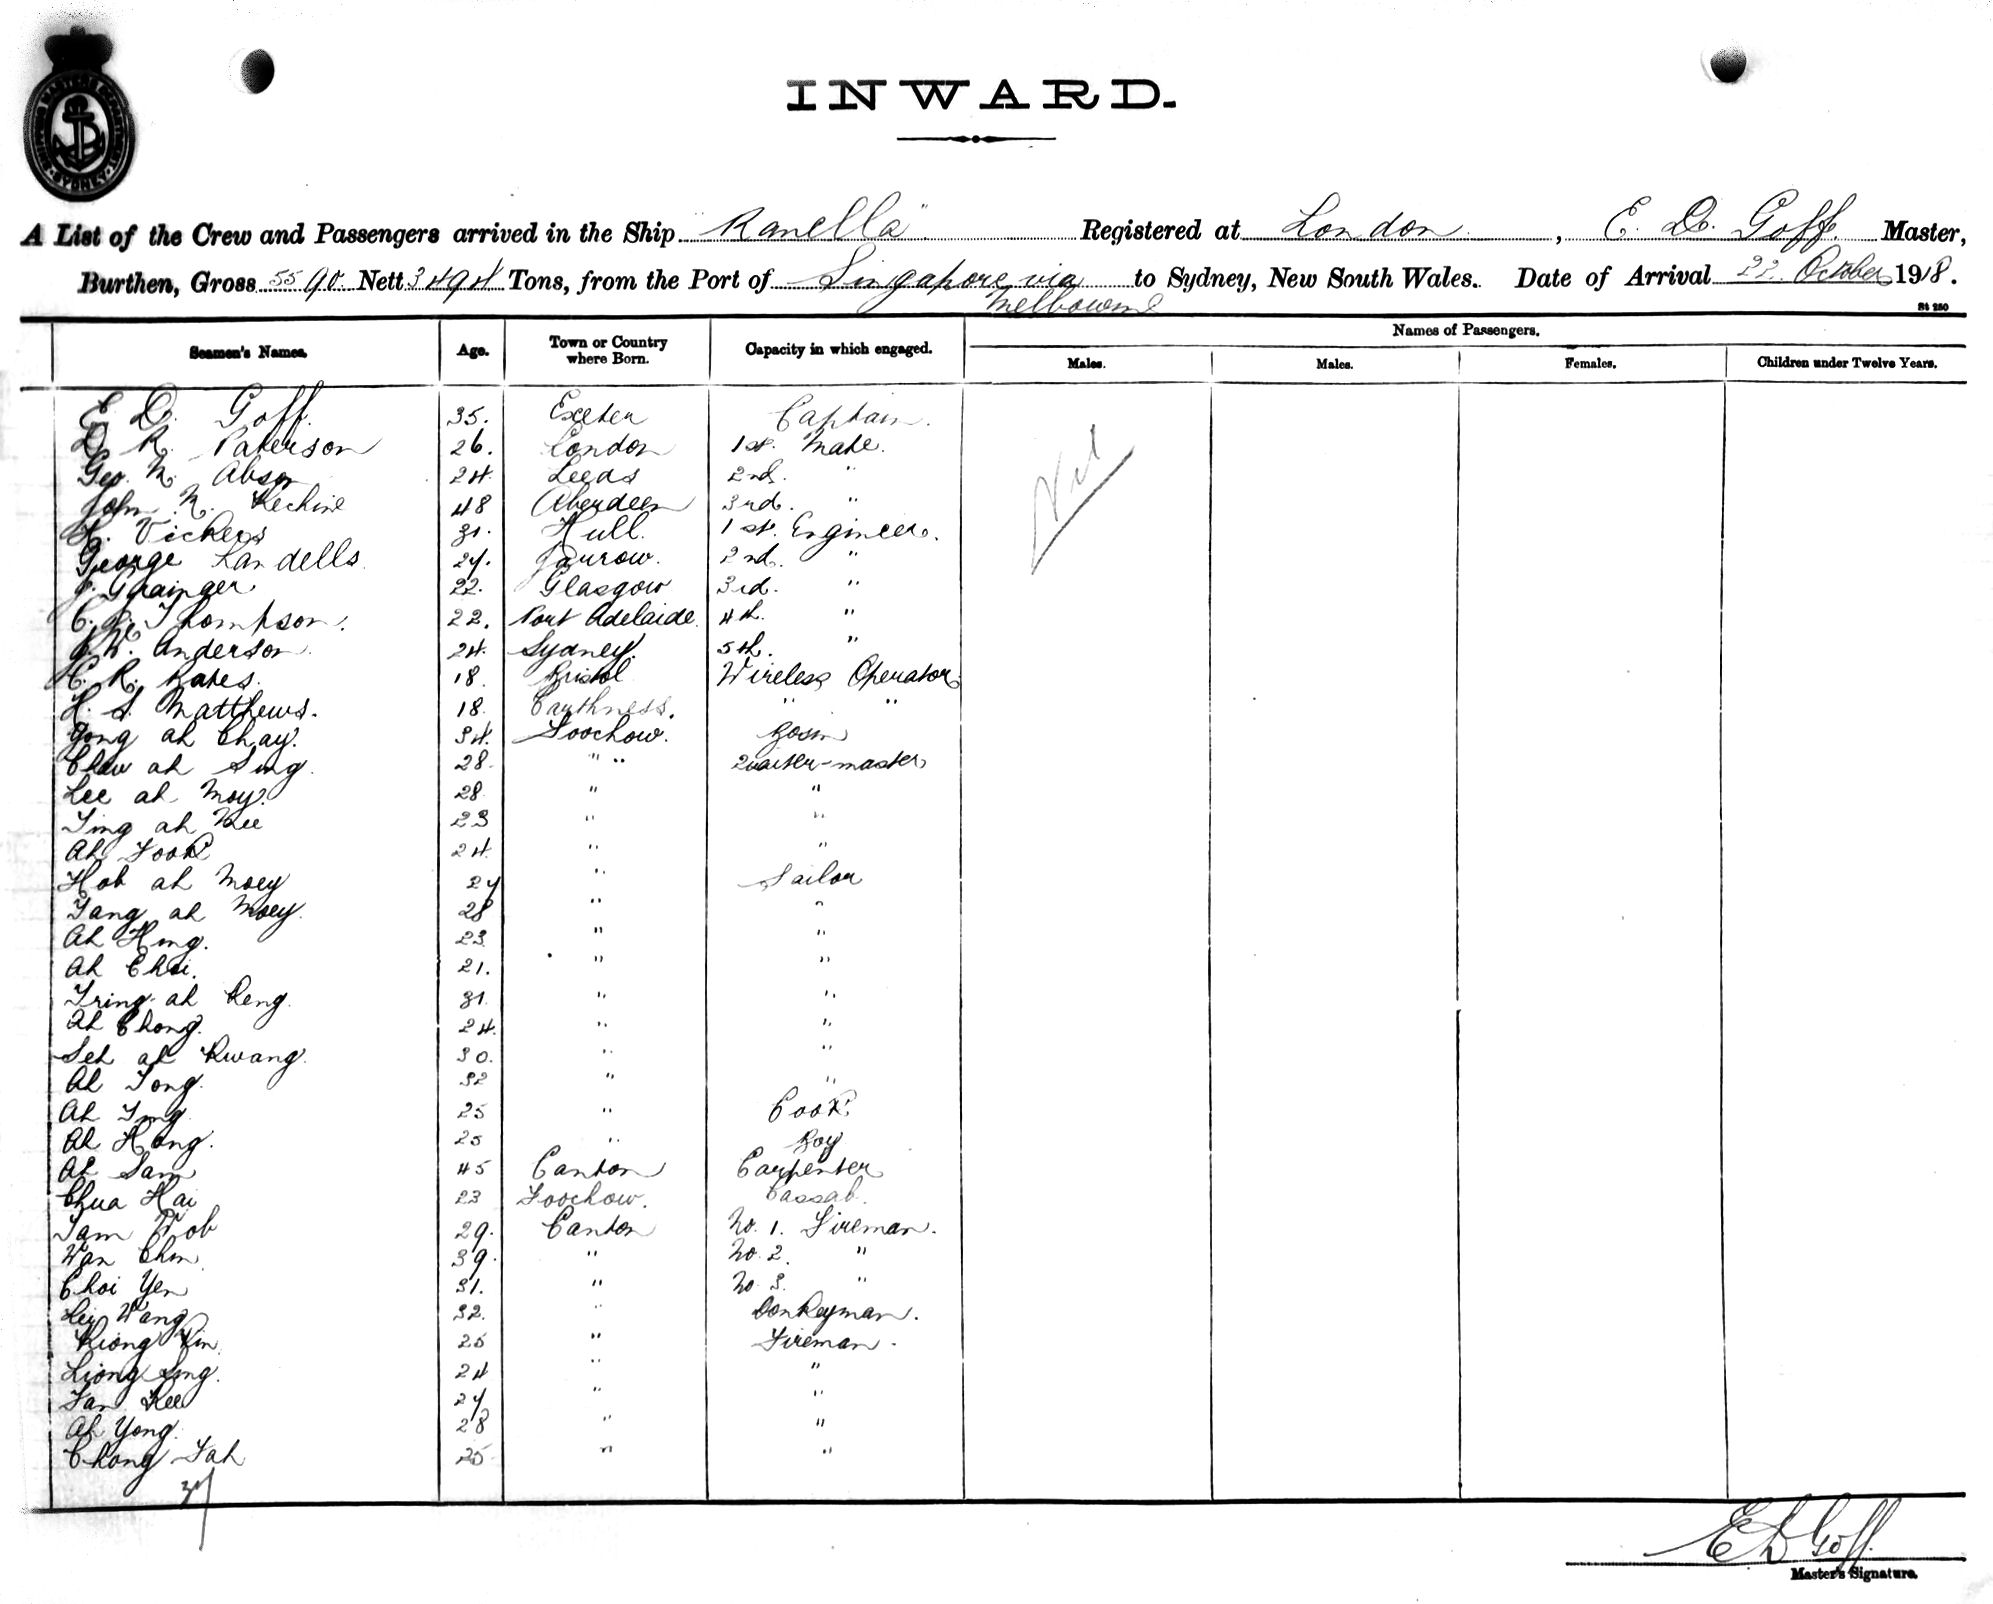 SHIPPING MASTERS DEPARTMENT SYDNEY
INWARD.
A List of the Crew and Passengers arrived in the Ship "Ranella" Registered at London, E. D. Goff. Master,
Burthen, Gross 5590. Nett 3494 Tons, from the Port of Singapore via Melbourne to Sydney, New South Wales. Date of Arrival 22 October 1918.
St 250
Seamen's Names. Age. Town or Country where Born. Capacity in which engaged. Names of Passengers.
Males. Males. Females. Children under Twelve Years.
E. D. Goff. 35. Exeter Captain.
D. R. Paterson 26. London 1st. Mate.
Geo. N. Abson 24. Leeds 2nd. "
John N. Kechine 48 Aberdeen 3rd. "
H. Vickers 31. Hull. 1st. Engineer.
George Landells. 27. Jarrow. 2nd. "
J. Grainger 22. Glasgow 3rd. "
C. J. Thompson. 22. Port Adelaide. 4th. "
Anderson. 24. Sydney. 5th. "
C. R. Bates. 18. Bristol Wireless Operator.
H. S. Matthews. 18. Caithness. " "
Gong ah Chay. 34. Foochow. Bosn
Chew ah Sing. 28. " " Quarter-master
Lee ah Moy. 28. " "
Ting ah Kee 23 " "
Ah Fook 24. " "
Hob ah Moey 27 " Sailor
Tang ah Moey. 28 " "
Ah Hing. 23. " "
Ah Choi. 21. " "
Tring ah Keng. 31. " "
Ah Chong. 24. " "
Seh ah Kwang. 30. " "
Ah Tong. 32 " "
Ah Ting 25 " Cook.
Ah Hong. 25 " Boy
Ah Sam 45 Canton Carpenter
Chua Hai 23 Foochow. Cassab.
Tam Wob 29. Canton No. 1. Fireman.
Wan Chin 39. " No. 2. "
Choi Yen 31. " No. 3. "
Lei Wang 32. " Donkeyman.
Kiong Kin 25 " Fireman.
Liong Sing. 24 " "
Fan Kee 27 " "
Ah Yong. 28 " "
Chong Fah 25 " "
Nil
37
E D Goff.
Master's Signature.